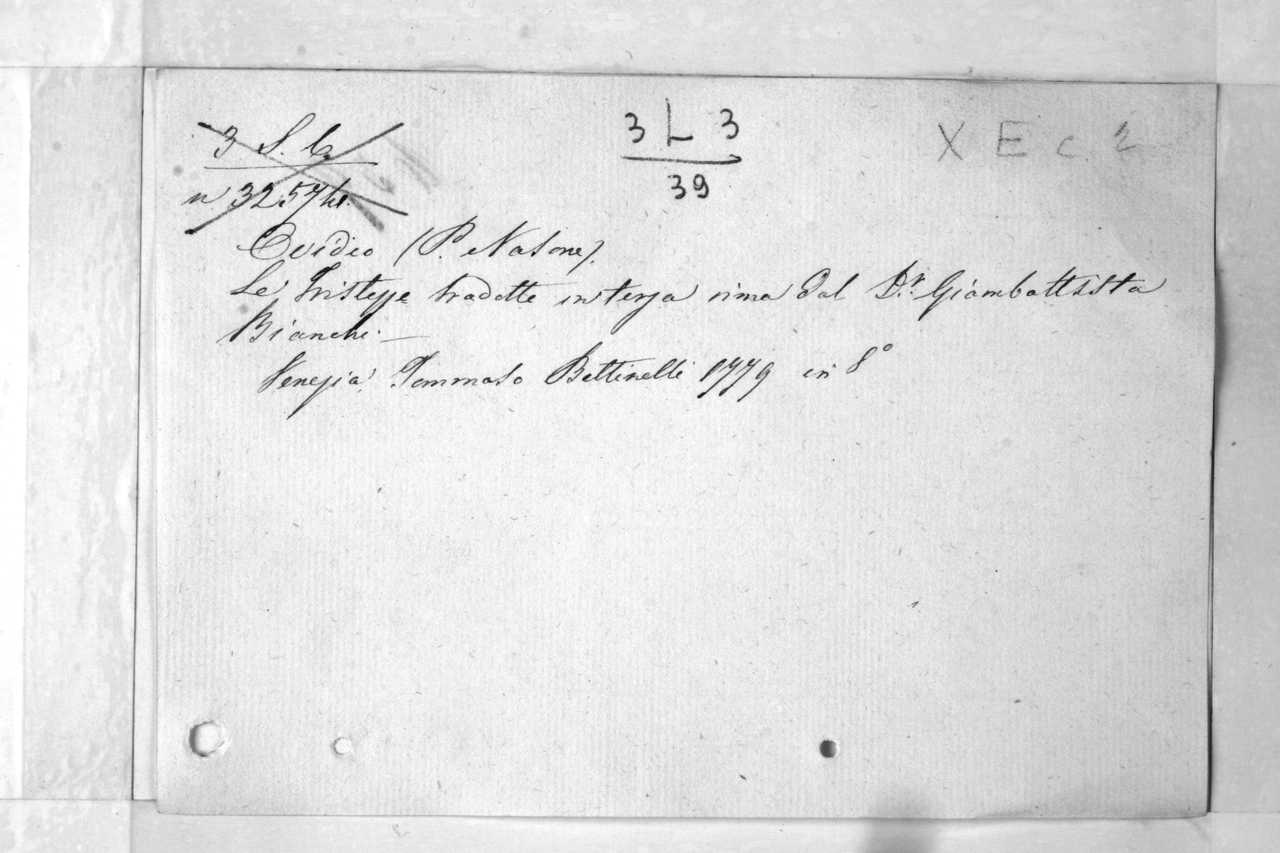 3 L 3
39
X E c 2
3 S. C.
n 3257
Ovidio (P. Nasone).
Le Tristezze tradotte in terza rima dal D.r Giambattista
Bianchi. —
Venezia Tommaso Bettinelli 1779 in 8°